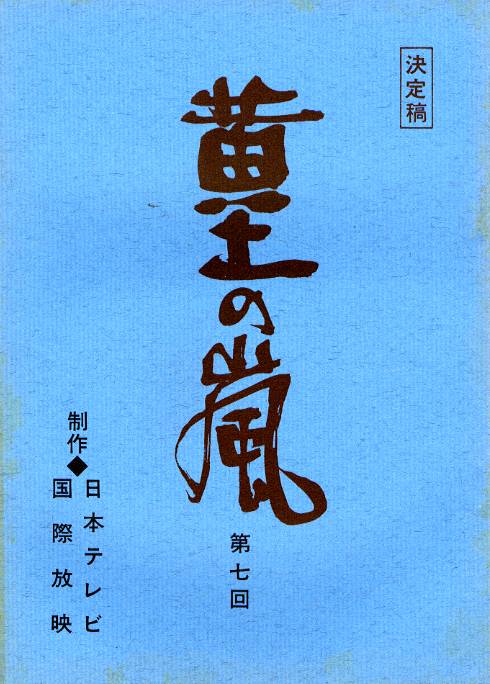 決定稿
黄土の嵐
第七回
制作◆
日本テレビ
国際放映